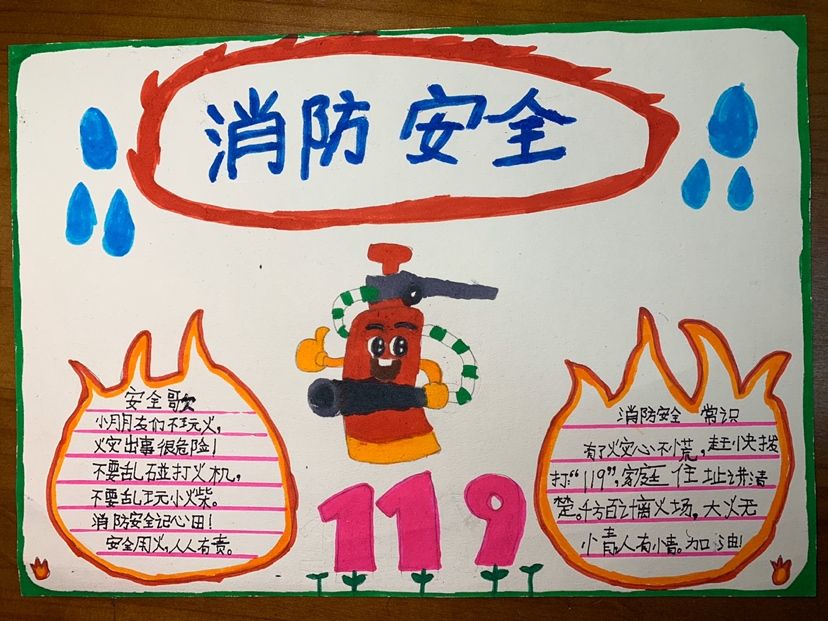 消防安全
安全歌
小朋友们不玩火,
火灾出事很危险!
不要乱碰打火机,
不要乱玩小火柴。
消防安全记心田!
安全用火,人人有责。
119
消防安全 常识
有了火灾心不慌,赶快拨
打“119”,家庭住址讲清
楚。千方百计离火场,大火无
情人有情。加油!